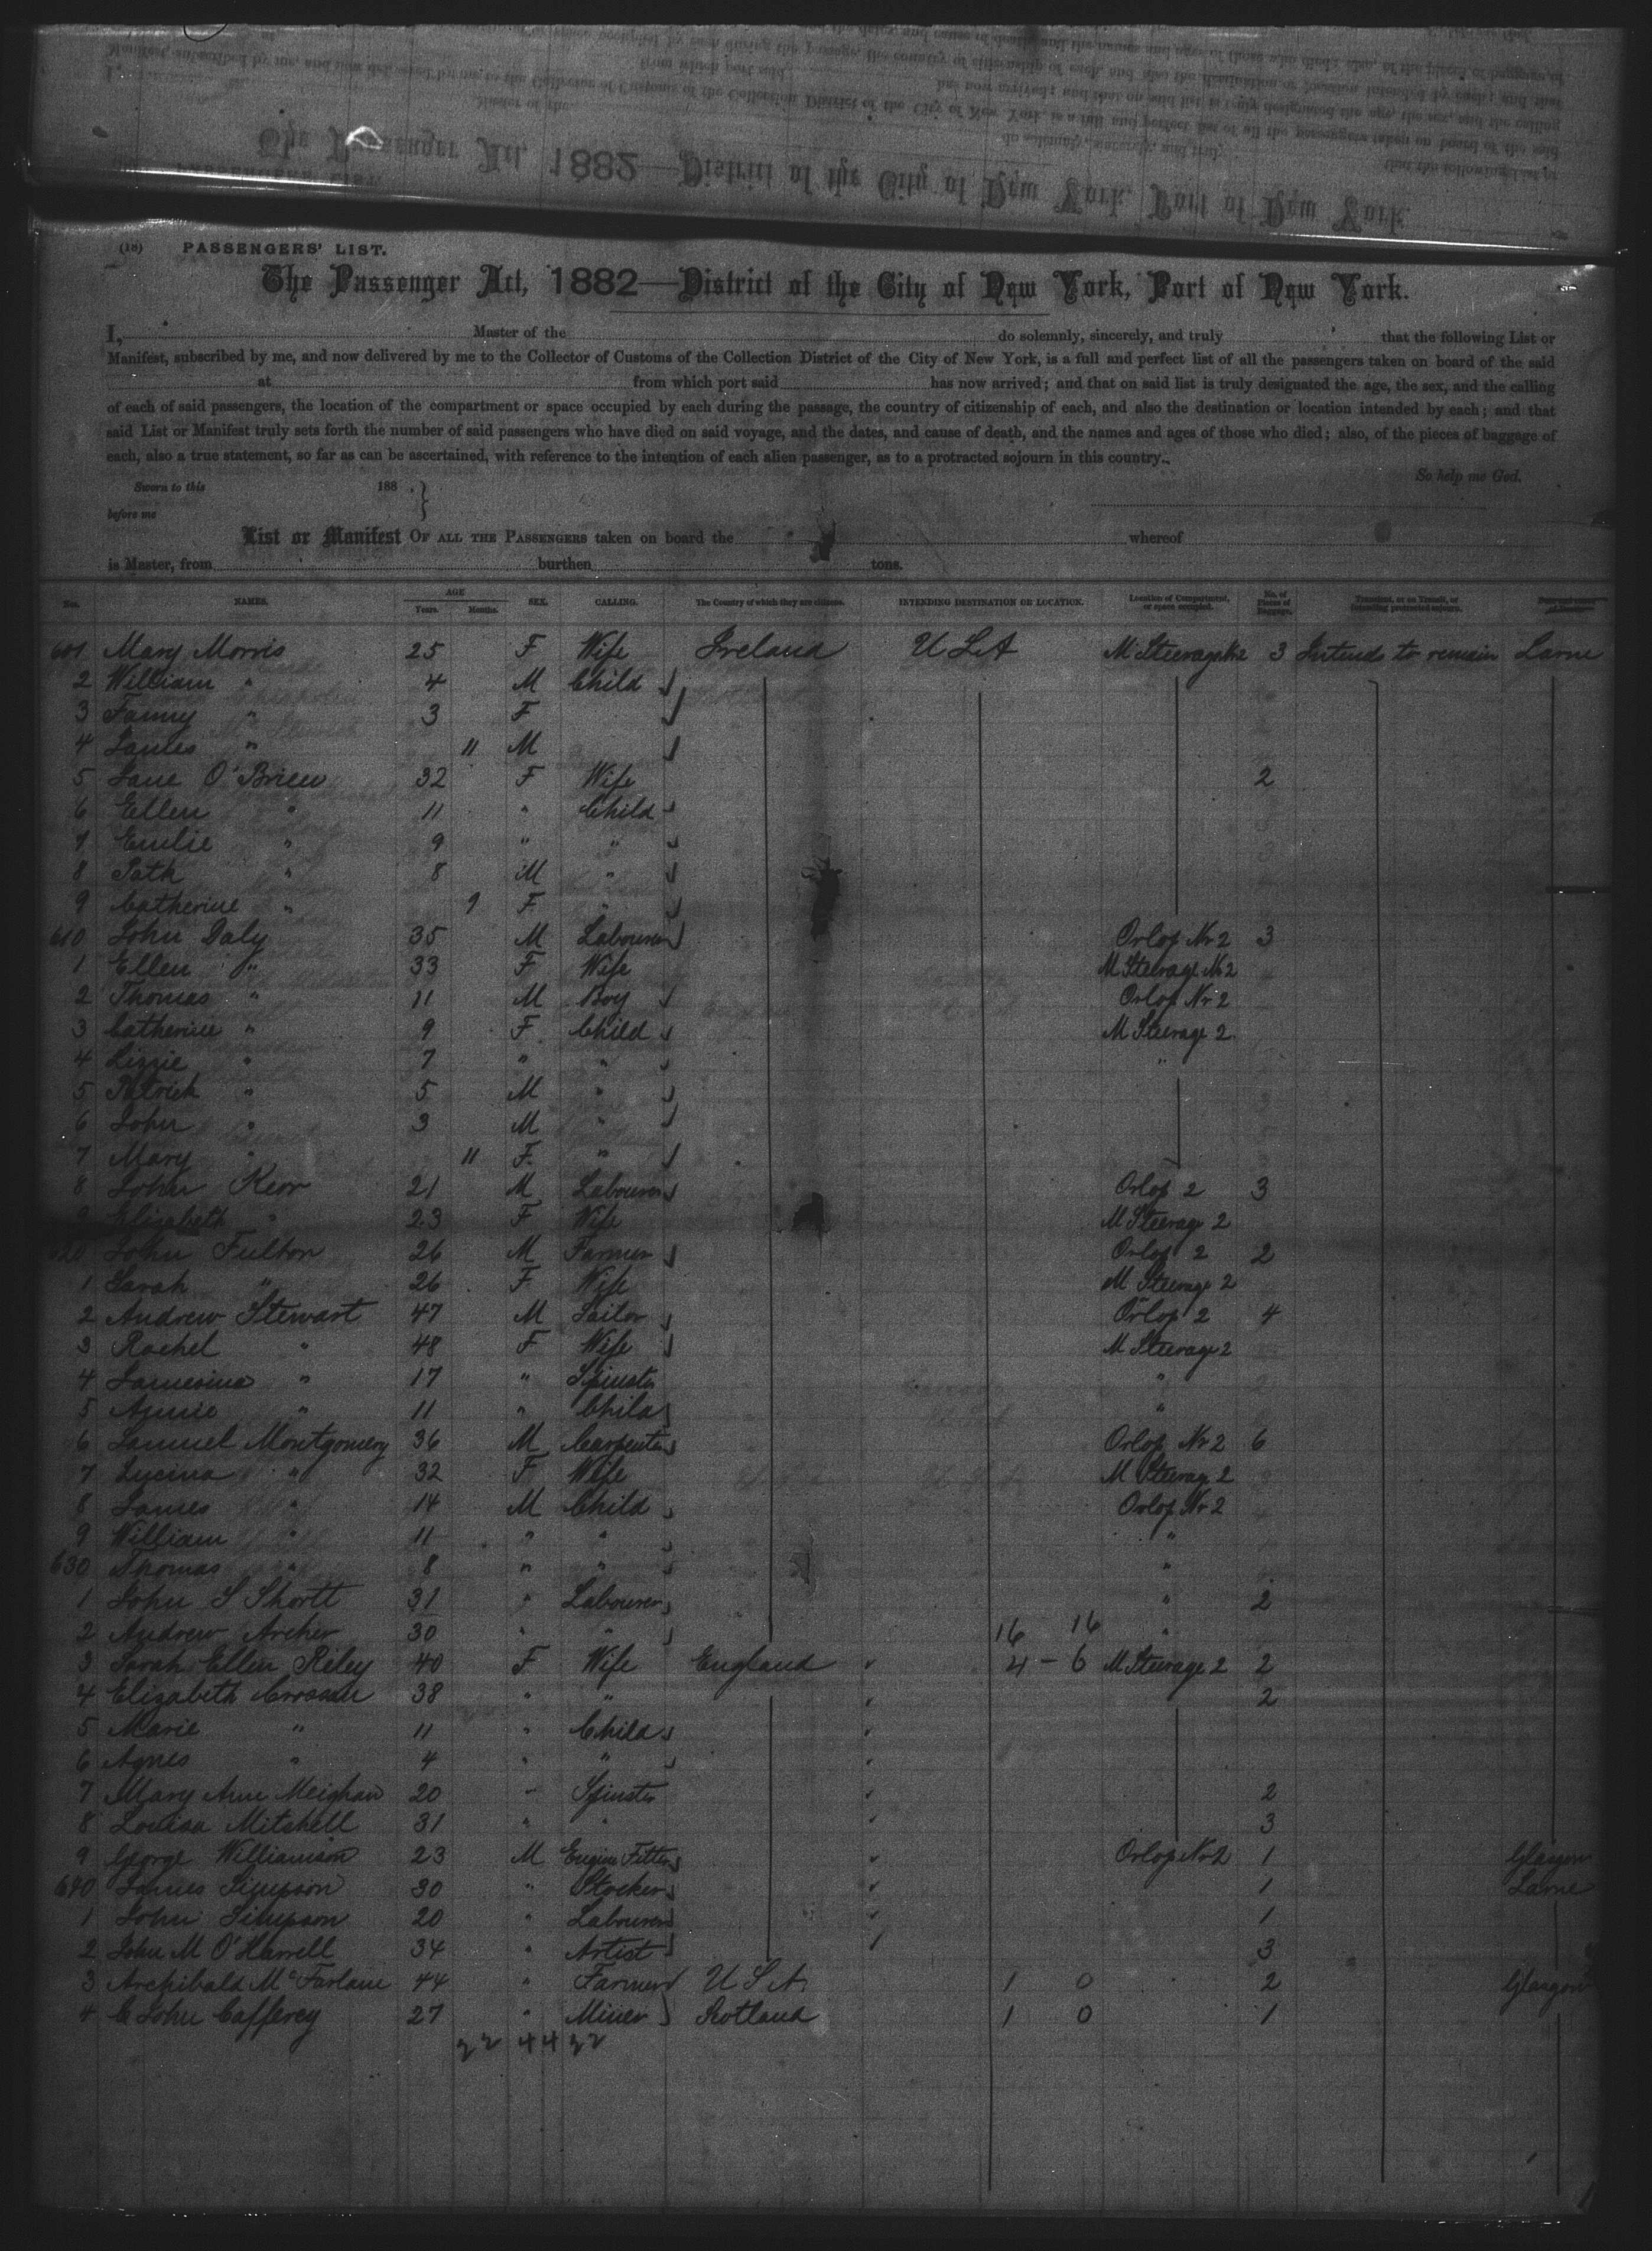 (18) PASSENGERS' LIST.
The Passenger Act, 1882—District of the City of New York, Port of New York.
I, Master of the do solemnly, sincerely, and truly that the following List or
Manifest, subscribed by me, and now delivered by me to the Collector of Customs of the Collection District of the City of New York, is a full and perfect list of all the passengers taken on board of the said
at from which port said has now arrived; and that on said list is truly designated the age, the sex, and the calling
of each of said passengers, the location of the compartment or space occupied by each during the passage, the country of citizenship of each, and also the destination or location intended by each; and that
said List or Manifest truly sets forth the number of said passengers who have died on said voyage, and the dates, and cause of death, and the names and ages of those who died; also, of the pieces of baggage of
each, also a true statement, so far as can be ascertained, with reference to the intention of each alien passenger, as to a protracted sojourn in this country.
So help me God.
Sworn to this 188 .
before me
List or Manifest OF ALL THE PASSENGERS taken on board the whereof
is Master, from burthen tons.
Nos. NAMES. AGE Years. Months. SEX. CALLING. The Country of which they are citizens. INTENDING DESTINATION OR LOCATION. Location of Compartment, or space occupied. No. of Pieces of Baggage. Transient, or in Transit, or intending protracted sojourn.
601 Mary Morris 25 F Wife Ireland USA M Steerage No2 3 Intends to remain Larne
2 William " 4 M Child
3 Fanny " 3 F
4 James " 11 M
5 Jane O'Brien 32 F Wife 2
6 Ellen " 11 " Child
7 Emilie " 9 " "
8 Path " 8 M "
9 Catherine " 9 F "
610 John Daly 35 M Labourer Orlop Nr 2 3
1 Ellen " 33 F Wife M Steerage No 2
2 Thomas " 11 M Boy Orlop Nr 2
3 Catherine " 9 F Child M Steerage 2
4 Lizzie " 7 " " "
5 Patrick " 5 M "
6 John " 3 M "
7 Mary " 11 F "
8 John Kerr 21 M Labourer Orlop 2 3
9 Elizabeth " 23 F Wife M Steerage 2
620 John Fulton 26 M Farmer Orlop 2 2
1 Sarah " 26 F Wife M Steerage 2
2 Andrew Stewart 47 M Sailor Orlop 2 4
3 Rachel " 48 F Wife M Steerage 2
4 Jamesina " 17 " Spinster "
5 Annie " 11 " Child "
6 Samuel Montgomery 36 M Carpenter Orlop Nr 2 6
7 Lucina " 32 F Wife M Steerage 2
8 James " 14 M Child Orlop Nr 2
9 William " 11 " " "
630 Thomas " 8 " " "
1 John S Shortt 31 " Labourer " 2
2 Andrew Archer 30 " " 16 16 "
3 Sarah Ellen Riley 40 F Wife England 4 - 6 M Steerage 2 2
4 Elizabeth Crossan 38 " " 2
5 Marie " 11 " Child
6 Agnes " 4 " "
7 Mary Ann Meighan 20 " Spinster 2
8 Louisa Mitchell 31 " " 3
9 George Williamson 23 M Engine Fitter Orlop Nr 2 1 Glasgow
640 James Simpson 30 " Stocker 1 Larne
1 John Simpson 20 " Labourer 1
2 John M O'Harrell 34 " Artist 3
3 Archibald McFarlane 44 " Farmer USA 1 0 2 Glasgow
4 C John Cafferey 27 " Miner Scotland 1 0 1
22 44 22